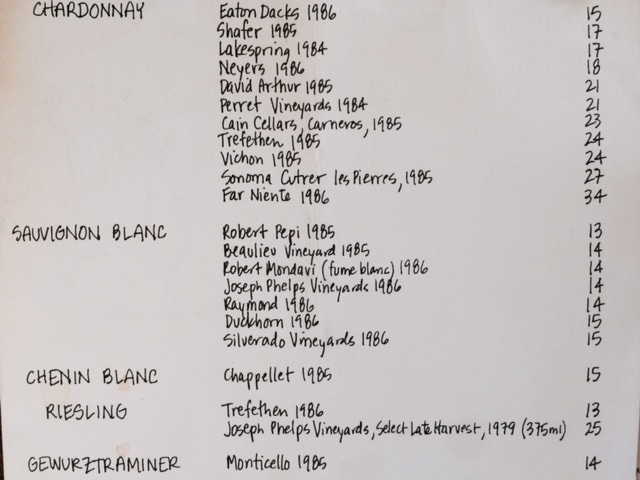 CHARDONNAY Eaton Dacks 1986 15
Shafer 1985 17
Lakespring 1984 17
Neyers 1986 18
David Arthur 1985 21
Perret Vineyards 1984 21
Cain Cellars, Carneros, 1985 23
Trefethen 1985 24
Vichon 1985 24
Sonoma Cutrer les Pierres, 1985 27
Far Niente 1986 34
SAUVIGNON BLANC Robert Pepi 1985 13
Beaulieu Vineyard 1985 14
Robert Mondavi (fume blanc) 1986 14
Joseph Phelps Vineyards 1986 14
Raymond 1986 14
Duckhorn 1986 15
Silverado Vineyards 1986 15
CHENIN BLANC Chappellet 1985 15
RIESLING Trefethen 1986 13
Joseph Phelps Vineyards, Select Late Harvest, 1979 (375ml) 25
GEWURZTRAMINER Monticello 1985 14